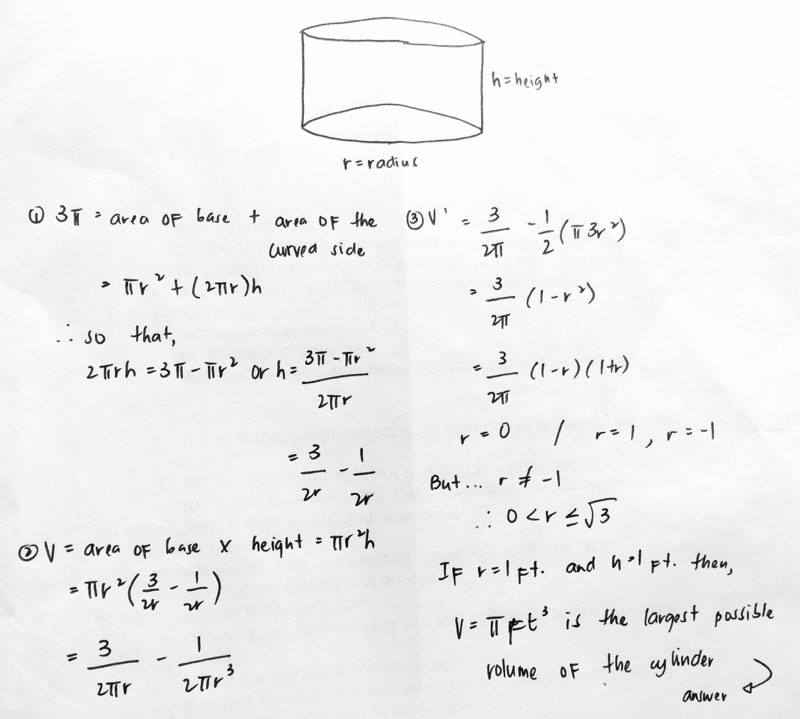 h = height
r = radius
① 3π = area of base + area of the
curved side
= πr² + (2πr)h
∴ so that,
2πrh = 3π - πr² or h = (3π - πr²)/(2πr)
= 3/(2r) - 1/(2r)
② V = area of base x height = πr²h
= πr² (3/(2r) - 1/(2r))
= 3/(2πr) - 1/(2πr³)
③ V' = 3/(2π) - 1/2 (π3r²)
= 3/(2π) (1-r²)
= 3/(2π) (1-r)(1+r)
r = 0 / r = 1, r = -1
But... r ≠ -1
∴ 0 < r ≤ √3
If r = 1 ft. and h = 1 ft. then,
V = π ft³ is the largest possible
volume of the cylinder
answer